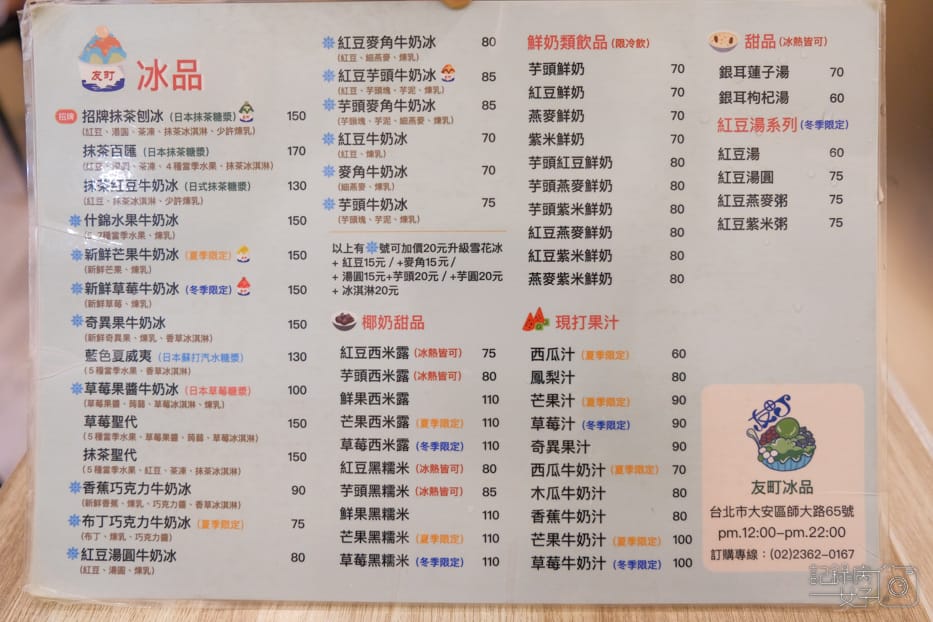 友町
冰品
招牌 招牌抹茶刨冰 (日本抹茶糖漿) 150
(紅豆、湯圓、茶凍、抹茶冰淇淋、少許煉乳)
抹茶百匯 (日本抹茶糖漿) 170
茶凍、4種當季水果、抹茶冰淇淋)
抹茶紅豆牛奶冰 (日式抹茶糖漿) 130
(紅豆、抹茶冰淇淋、少許煉乳)
什錦水果牛奶冰 150
種當季水果、煉乳)
新鮮芒果牛奶冰 (夏季限定) 150
(新鮮芒果、煉乳)
新鮮草莓牛奶冰 (冬季限定) 150
(新鮮草莓、煉乳)
奇異果牛奶冰 150
(新鮮奇異果、煉乳、香草冰淇淋)
藍色夏威夷 (日本蘇打汽水糖漿) 130
(5種當季水果、香草冰淇淋)
草莓果醬牛奶冰 (日本草莓糖漿) 100
(草莓果醬、蒟蒻、草莓冰淇淋、煉乳)
草莓聖代 150
(5種當季水果、草莓果醬、蒟蒻、草莓冰淇淋)
抹茶聖代 150
(5種當季水果、紅豆、茶凍、抹茶冰淇淋)
香蕉巧克力牛奶冰 90
(新鮮香蕉、煉乳、巧克力醬、香草冰淇淋)
布丁巧克力牛奶冰 (夏季限定) 75
(布丁、煉乳、巧克力醬)
紅豆湯圓牛奶冰 80
(紅豆、湯圓、煉乳)
紅豆麥角牛奶冰 80
(紅豆、細燕麥、煉乳)
紅豆芋頭牛奶冰 85
(紅豆、芋頭塊、芋泥、煉乳)
芋頭麥角牛奶冰 85
(芋頭塊、芋泥、細燕麥、煉乳)
紅豆牛奶冰 70
(紅豆、煉乳)
麥角牛奶冰 70
(細燕麥、煉乳)
芋頭牛奶冰 75
(芋頭塊、芋泥、煉乳)
以上有號可加價20元升級雪花冰
+ 紅豆15元 / +麥角15元 /
+ 湯圓15元+芋頭20元 / +芋圓20元
+ 冰淇淋20元
椰奶甜品
紅豆西米露 (冰熱皆可) 75
芋頭西米露 (冰熱皆可) 80
鮮果西米露 110
芒果西米露 (夏季限定) 110
草莓西米露 (冬季限定) 110
紅豆黑糯米 (冰熱皆可) 80
芋頭黑糯米 (冰熱皆可) 85
鮮果黑糯米 110
芒果黑糯米 (夏季限定) 110
草莓黑糯米 (冬季限定) 110
鮮奶類飲品 (限冷飲)
芋頭鮮奶 70
紅豆鮮奶 70
燕麥鮮奶 70
紫米鮮奶 70
芋頭紅豆鮮奶 80
芋頭燕麥鮮奶 80
芋頭紫米鮮奶 80
紅豆燕麥鮮奶 80
紅豆紫米鮮奶 80
燕麥紫米鮮奶 80
現打果汁
西瓜汁 (夏季限定) 60
鳳梨汁 80
芒果汁 (夏季限定) 90
草莓汁 (冬季限定) 90
奇異果汁 90
西瓜牛奶汁 (夏季限定) 70
木瓜牛奶汁 80
香蕉牛奶汁 80
芒果牛奶汁 (夏季限定) 100
草莓牛奶汁 (冬季限定) 100
甜品 (冰熱皆可)
銀耳蓮子湯 70
銀耳枸杞湯 60
紅豆湯系列 (冬季限定)
紅豆湯 60
紅豆湯圓 75
紅豆燕麥粥 75
紅豆紫米粥 75
友町
友町冰品
台北市大安區師大路65號
pm.12:00–pm.22:00
訂購專線：(02)2362–0167